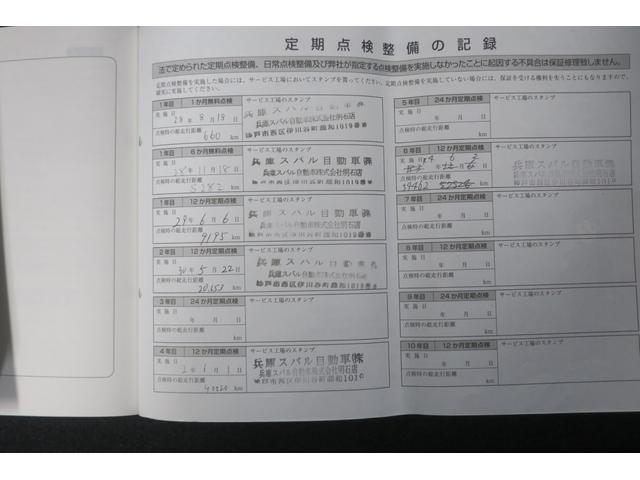 定期点検整備の記録
法で定められた定期点検整備、日常点検整備及び弊社が指定する点検整備を実施しなかったことに起因する不具合は保証修理致しません。
定期点検整備を実施した場合には、サービス工場においてスタンプを貰ってください。定期点検整備を実施していない場合には、保証を受ける権利を失うこともなりますので、
確実に実施してください。
1年目 1か月無料点検
サービス工場のスタンプ
実施日
28年8月18日
点検時の総走行距離
660 km
兵庫スバル自動車㈱
兵庫スバル自動車株式会社明石店
神戸市西区伊川谷町潤和1019番
1年目 6か月無料点検
サービス工場のスタンプ
実施日
28年11月18日
点検時の総走行距離
5282 km
兵庫スバル自動車㈱
兵庫スバル自動車株式会社明石店
神戸市西区伊川谷町潤和1019番
1年目 12か月定期点検
サービス工場のスタンプ
実施日
29年6月6日
点検時の総走行距離
9195 km
兵庫スバル自動車㈱
兵庫スバル自動車株式会社明石店
神戸市西区伊川谷町潤和1019番
2年目 12か月定期点検
サービス工場のスタンプ
実施日
30年5月22日
点検時の総走行距離
km
兵庫スバル自動車
兵庫スバル自動車株式会社明石店
神戸市西区伊川谷町潤和1019番
3年目 24か月定期点検
サービス工場のスタンプ
実施日
年 月 日
点検時の総走行距離
km
4年目 12か月定期点検
サービス工場のスタンプ
実施日
2年6月1日
点検時の総走行距離
km
兵庫スバル自動車㈱
兵庫スバル自動車株式会社明石店
神戸市西区伊川谷町潤和101
5年目 24か月定期点検
サービス工場のスタンプ
実施日
年 月 日
点検時の総走行距離
km
6年目 12か月定期点検
サービス工場のスタンプ
実施日
点検時の総走行距離
km
兵庫スバル自動車㈱
兵庫スバル自動車株式会社明石店
7年目 24か月定期点検
サービス工場のスタンプ
実施日
年 月 日
点検時の総走行距離
km
8年目 12か月定期点検
サービス工場のスタンプ
実施日
年 月 日
点検時の総走行距離
km
9年目 24か月定期点検
サービス工場のスタンプ
実施日
年 月 日
点検時の総走行距離
km
10年目 12か月定期点検
サービス工場のスタンプ
実施日
年 月 日
点検時の総走行距離
km